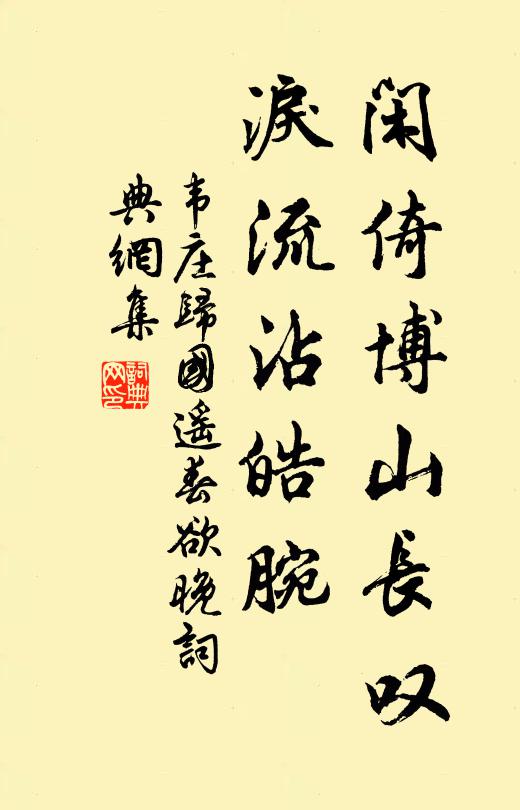 闲倚博山長叹
淚流沾皓腕
韦庄歸國遥春欲晚詞
典網集
詞典
网印